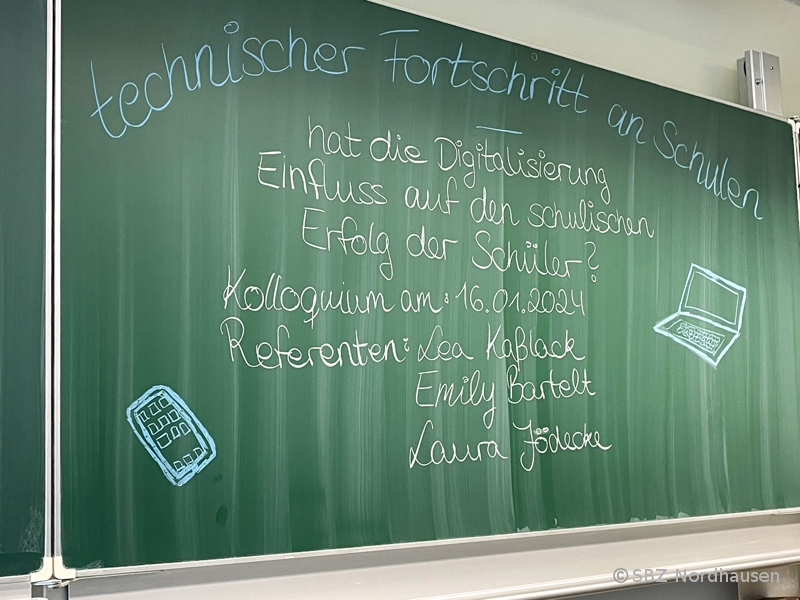 technischer Fortschritt an Schulen
hat die Digitalisierung
Einfluss auf den schulischen
Erfolg der Schüler?
Kolloquium am: 16.01.2024
Referenten: Lea Kaßlack
Emily Bartelt
Laura Jödecke
© SBZ Nordhausen